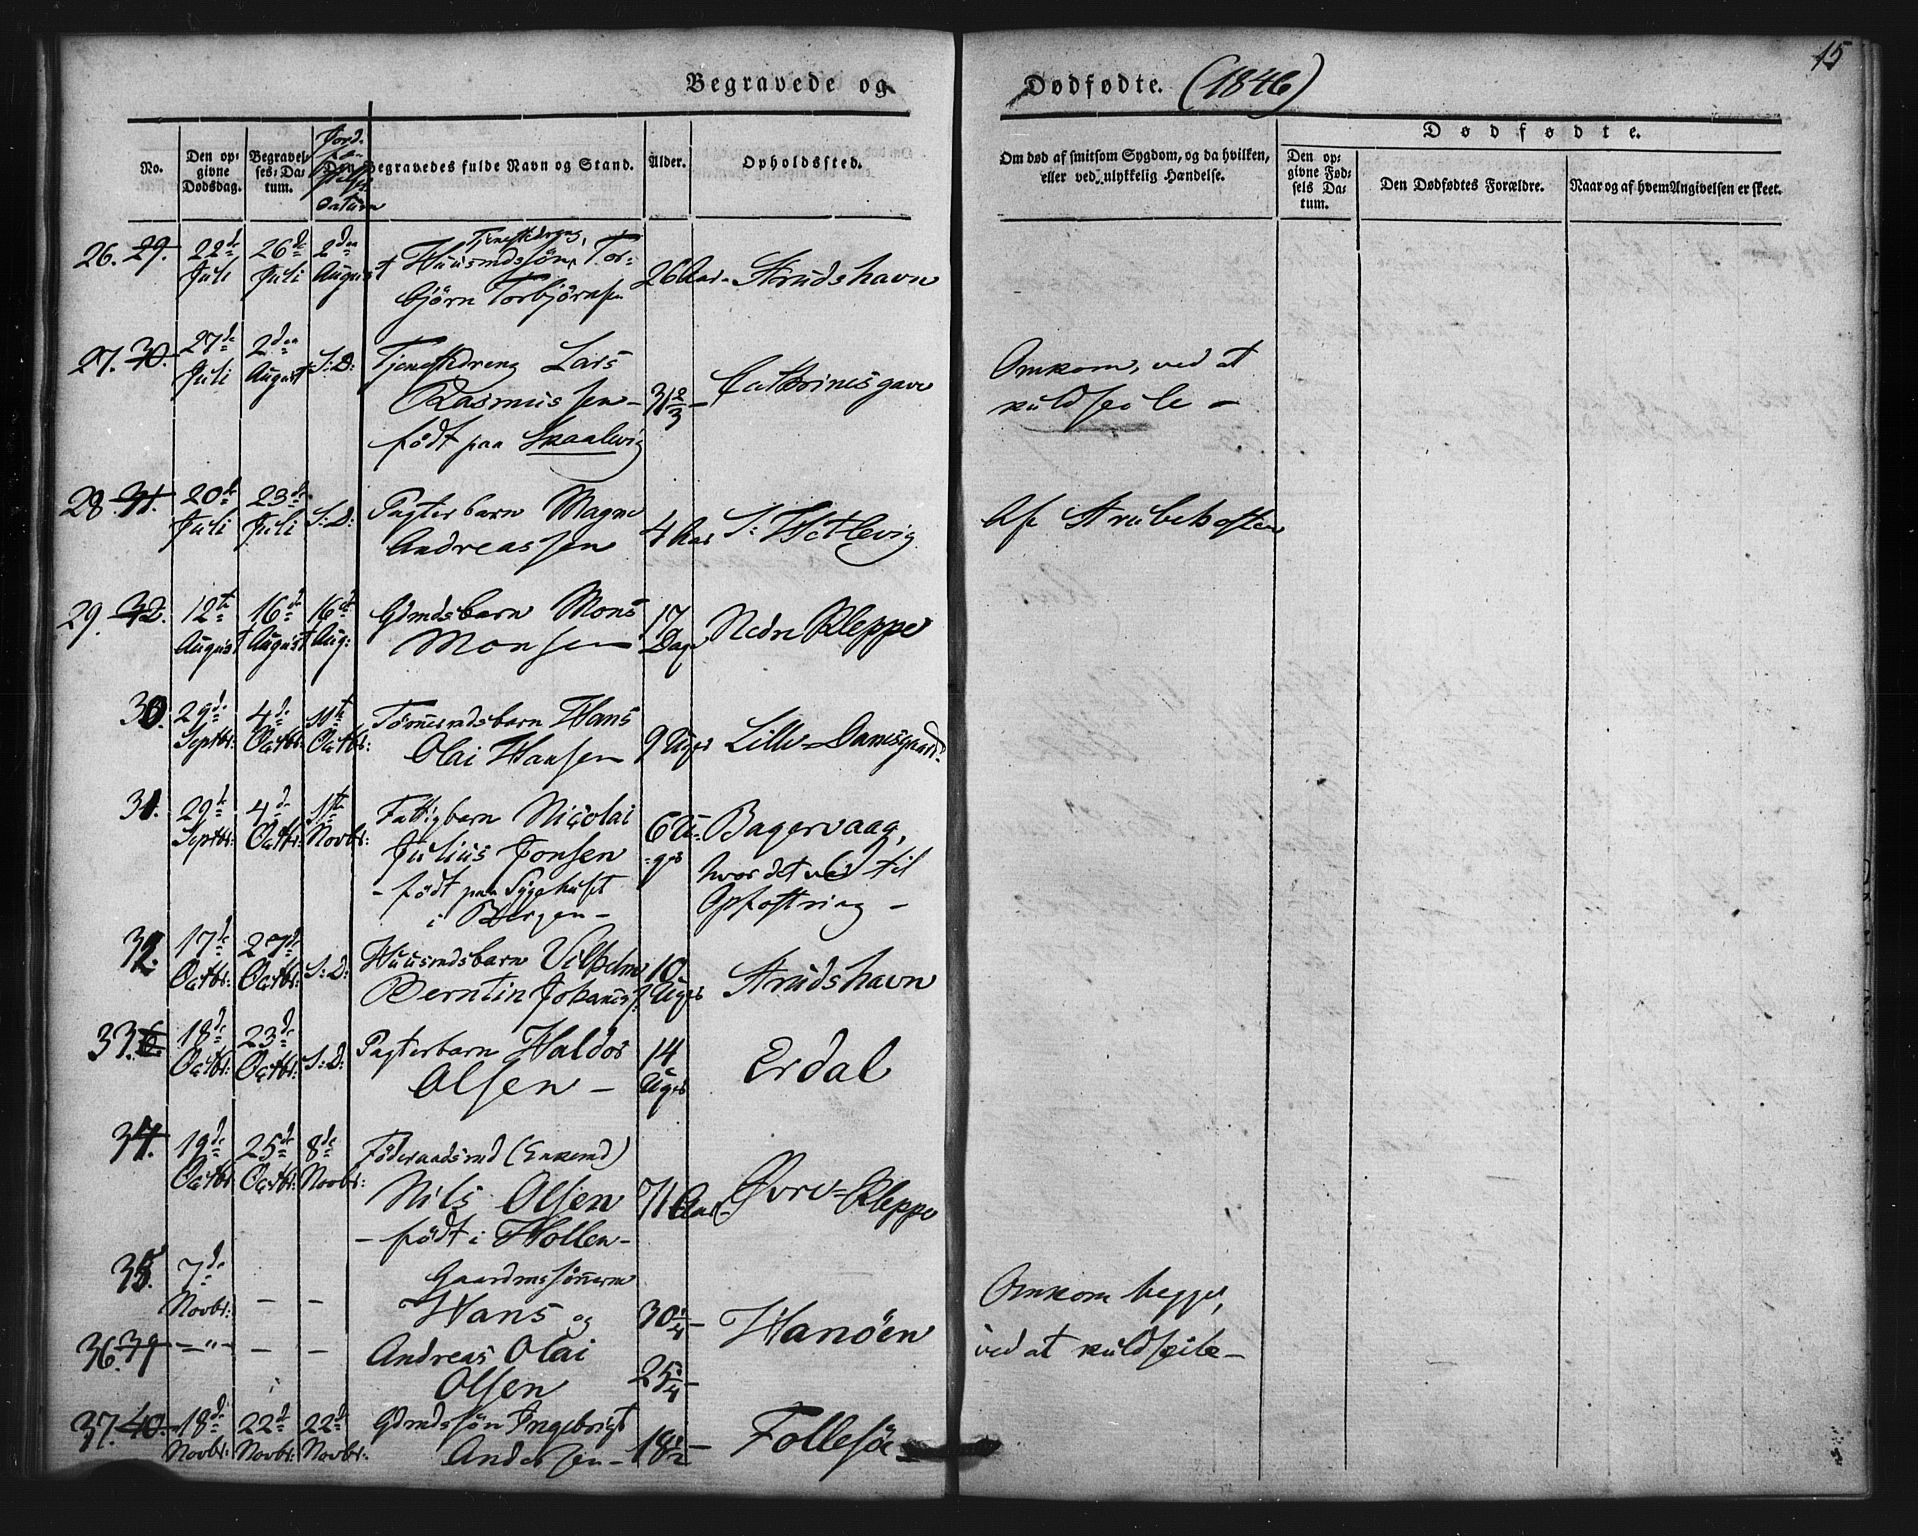 15
Begravede og Dødfødte. (1846)
No.
Den op-
givne
Dødsdag.
Begravel-
ses-Da-
tum.
Jord-
fæ-
stelses
Datum
Den Begravedes fulde Navn og Stand.
Alder.
Opholdssted.
Om død af smitsom Sygdom, og da hvilken,
eller ved ulykkelig Hændelse.
Dødfødte.
Den op-
givne Fød-
sels Da-
tum.
Den Dødfødtes Forældre.
Naar og af hvem Angivelsen er skeet.
26. 29. 22de Juli 26de Juli 2den August
Tjenestedreng,
Huusmdssøn, Tor-
bjørn Torbjørnsen
26 Aar- Strudshavn
27. 30. 27de Juli 2den August S: D:
Tjenestedreng Lars
Rasmussen-
født paa Skaalevig
31 2/3 - Cathrinesgave
Omkom, ved at
kuldseile -
28 31. 20de Juli 23de Juli S: D:
Pagterbarn Magne
Andreassen
4 Aar S: Hetlevig
Af Strubehosten
29. 32. 12te August 16de August 16de Aug:
Gdmdsbarn Mons
Monsen
17 Dage Nedre Kleppe
30. 29de Septbr: 4de Octbr: 11te Octbr:
Tømmdsbarn Hans
Olai Hansen
9 Uger Lille-Damsgaard
31. 29de Septbr: 4de Octbr: 1ste Novbr:
Fattigbarn Nicolai
Julius Jonsen
- født paa Sygehuset
i Bergen -
6 U-
ger
Bagervaag,
hvor det var til
Opfostring -
32. 17de Octbr: 27de Octbr: S: D:
Huusmdsbarn Vilhelm
Berntin Johannes:
10 Uger Strudshavn
33. 18de Octbr: 23de Octbr: S: D:
Pagterbarn Haldor
Olsen -
14 Uger Erdal
34. 19de Octbr: 25de Octbr: 8de Novbr:
Føderaadsmd (Enkemd)
Nils Olsen
- født i Hollen -
71 Aar- Øvre-Kleppe
35. 7de Novbr: - -
Gaardmssønnerne
Hans og
30 1/4 - Hanøen
Omkom begge,
ved at kuldseile -
36. 39 -"- - -
Andreas Olai
Olsen
25 1/4 -
37. 40. 18de Novbr: 22de Novbr: 22de Novbr:
Gdmdssøn Ingebrigt
Andersen -
18 1/2 - Follesøe